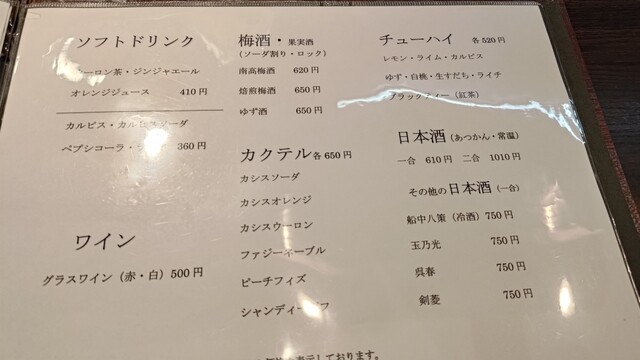 ソフトドリンク
ーロン茶・ジンジャエール
オレンジジュース 410円
カルピス・カルピスソーダ
ペプシコーラ・ 360円
ワイン
グラスワイン（赤・白）500円
梅酒・果実酒
（ソーダ割り・ロック）
南高梅酒 620円
焙煎梅酒 650円
ゆず酒 650円
カクテル各650円
カシスソーダ
カシスオレンジ
カシスウーロン
ファジーネーブル
ピーチフィズ
シャンディーガフ
チューハイ 各520円
レモン・ライム・カルピス
ゆず・白桃・生すだち・ライチ
ブラックティー（紅茶）
日本酒（あつかん・常温）
一合 610円 二合 1010円
その他の日本酒（一合）
船中八策（冷酒）750円
玉乃光 750円
呉春 750円
剣菱 750円
表示しております。